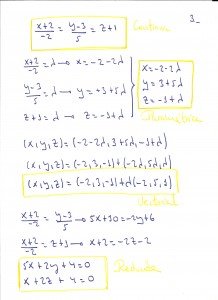 3_
x+2/-2 = y-3/5 = z+1 Continua
x+2/-2 = λ → x = -2-2λ
y-3/5 = λ → y = +3+5λ
z+1 = λ → z = -1+λ
x = -2-2λ
y = 3+5λ
z = -1+λ
(x,y,z) = (-2-2λ, 3+5λ, -1+λ)
(x,y,z) = (-2,3,-1)+(-2λ,5λ,λ)
(x,y,z) = (-2,3,-1)+λ(-2,5,1)
Vectorial
x+2/-2 = y-3/5 → 5x+10 = -2y+6
x+2/-2 = z+1 → x+2 = -2z-2
5x+2y+4=0
x+2z+4=0
Reducida